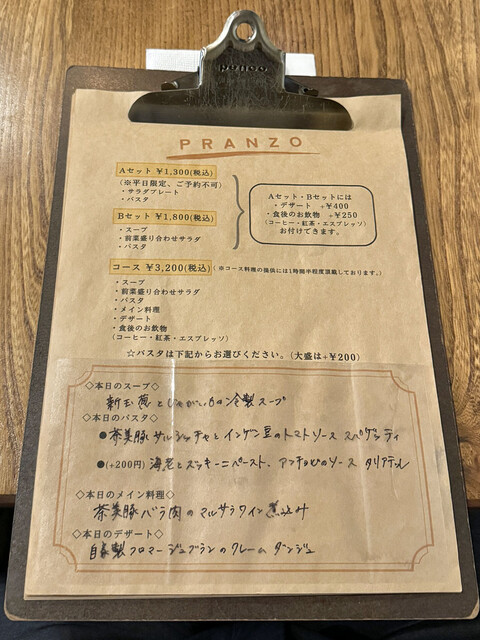 PRANZO
Aセット ¥1,300(税込)
(※平日限定、ご予約不可)
・サラダプレート
・パスタ
Bセット ¥1,800(税込)
・スープ
・前菜盛り合わせサラダ
・パスタ
Aセット・Bセットには
・デザート +¥400
・食後のお飲物 +¥250
(コーヒー・紅茶・エスプレッソ)
お付けできます。
コース ¥3,200(税込) (※コース料理の提供には1時間半程度頂戴しております。)
・スープ
・前菜盛り合わせサラダ
・パスタ
・メイン料理
・デザート
・食後のお飲物
(コーヒー・紅茶・エスプレッソ)
☆パスタは下記からお選びください。(大盛は+¥200)
◇本日のスープ◇
新玉葱とじゃがいもの冷製スープ
◇本日のパスタ◇
●茶美豚サルシッチャとインゲン豆のトマトソース スパゲッティ
●(+200円) 海老とズッキーニペースト、アンチョビのソース タリアテッレ
◇本日のメイン料理◇
茶美豚バラ肉のマルサラワイン煮込み
◇本日のデザート◇
自家製フロマージュブランのクレームダンジュ